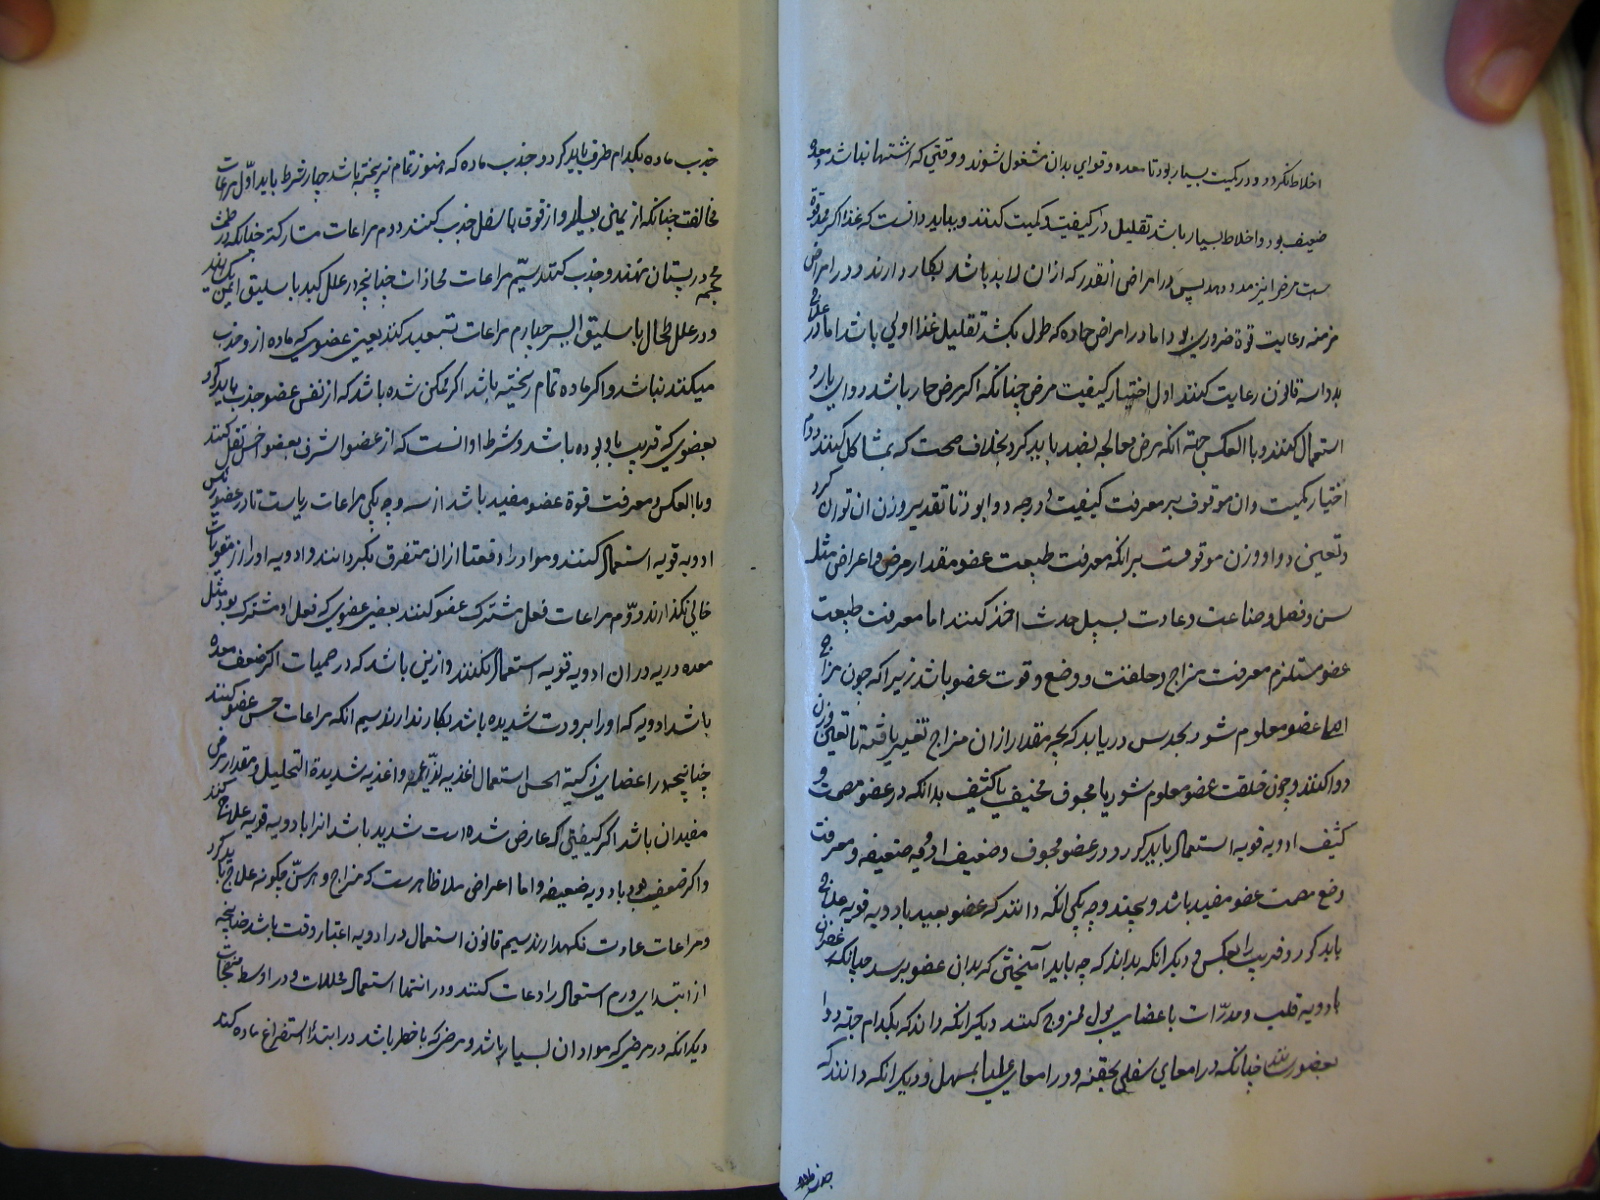 اخلاط نکردد و در کمیت بسیار بود تا معده و قوای بدن مشغول شوند و وقتی که اشتها نباشد و معده
ضعیف بود و اخلاط بسیار باشد تقلیل در کیفیت و کمیت کنند و بباید دانست که غذا اکرچه قوة
مرض را نیز مدد دهد پس در امراض انقدر که ازان لابد باشد بکار دارند و در امراض
مزمنه رعایت قوة ضروری بود اما در امراض حاده که طول نکشد تقلیل غذا اولی باشد اما در علاج
بدوا سه قانون رعایت کنند اول اختیار کیفیت مرض چنانکه اکر مرض حار باشد دوای بارد
استعمال کنند و باالعکس جهة انکه مرض معالجه بضد باید کرد بخلاف صحت که بمشاکل کنند دوم
اختیار کمیت و ان موقوف بر معرفت کیفیت و درجه دوا بود تا تقدیر وزن ان توان کرد
و تعین دوا و وزن موقوفست برانکه معرفت طبیعت عضو و مقدار مرض و اعراض مثل
سن و فصل و صناعت و عادت بسبیل حدث اخذ کنند اما معرفت طبیعت
عضو مستلزم معرفت مزاج و خلقت و وضع و قوت عضو باشد زیرا که چون مزاج
عضو معلوم شود بحدس دریابد که بچه مقدار ازان مزاج تغییر یافته تا تعین وزن
دوا کنند و چون خلقت عضو معلوم شود یا مجوف سخیف یا کثیف بدانکه در عضو مصمت و
کثیف ادویه قویه استعمال باید کرد و در عضو مجوف و ضعیف ادویه ضعیفه و معرفت
وضع عضو مفید باشد و بچند وجه یکی انکه دانند که عضو بعید بادویه قویه علاج
باید کرد و قریب را بعکس و دیکر انکه بداند که چه باید آمیختی که بدان عضو برسد چنانکه زعفران
بادویه قلب و مدرّات باعضای بول ممزوج کنند دیکر انکه داند که بکدام جهة دوا
بعضو رسد چنانکه در امعای سفلی بحقنه و در امعای علیا بمسهل و دیکر انکه دانند که
جذب ماده
جذب ماده بکدام طرف باید کرد و جذب ماده که هنوز تمام نریخته باشد چهار شرط باید اوّل مراعات
مخالفت چنانکه از یمنی بیسار و از فوق باسفل جذب کنند دوم مراعات مشارکة چنانکه در طمث
محجمه در پستان نهند و جذب کنند سیّم مراعات محاذات چنانچه در علل کبد باسلیق ایمن کشایند
و در علل طحال باسلیق ایسر چهارم مراعات تبعید کنند یعنی عضوی که ماده ازو جذب
میکنند نباشد و اکر ماده تمام ریخته باشد اکر ممکن شده باشد که از نفس عضو جذب باید کرد
بعضوی که قریب باو بوده باشد و شرط او انست که از عضو اشرف بعضو اخس نقل کنند
و باالعکس و معرفت قوة عضو مفید باشد از سه وجه یکی مراعات ریاست تا در عضو رئیس
ادویه قویه استعمال کنند و مواد را دفعتا ازان متفرق نکردانند و ادویه او را از مقویات
خالی نکذارند دوّم مراعات فعل مشترک عضو کنند یعنی عضوی که فعل او مشترک بود مثل
معده و ریه دران ادویه قویه استعمال نکنند و ازین باشد که در حمیات اکر ضعف معده
باشد ادویه که او را برودت شدیده باشد بکار ندارند سیم انکه مراعات حس عضو کنند
چنانچه در اعضای ذکیة الحس استعمال اغذیه لذّاعه و اغذیه شدیدة التحلیل و مقدار مرض
مفید ان باشد اکر کیفیتی که عارض شده است شدید باشد انرا بادویه قویه علاج کنند
و اکر ضعیف بود بادویه ضعیفه و اما اعراض ملا ظاهرست که مزاج و هر سنّ چکونه علاج باید کرد
و مراعات عادت نکهدارند سیم قانون استعمال در ادویه اعتبار وقت باشد چنانچه
از ابتدای ورم استعمال رادعات کنند و در انتها استعمال محللات و در اوسط منضجات
دیکر انکه در مرضی که مواد ان بسیار باشد و مرضی که با خطر باشد در ابتدا استفراغ ماده کنند